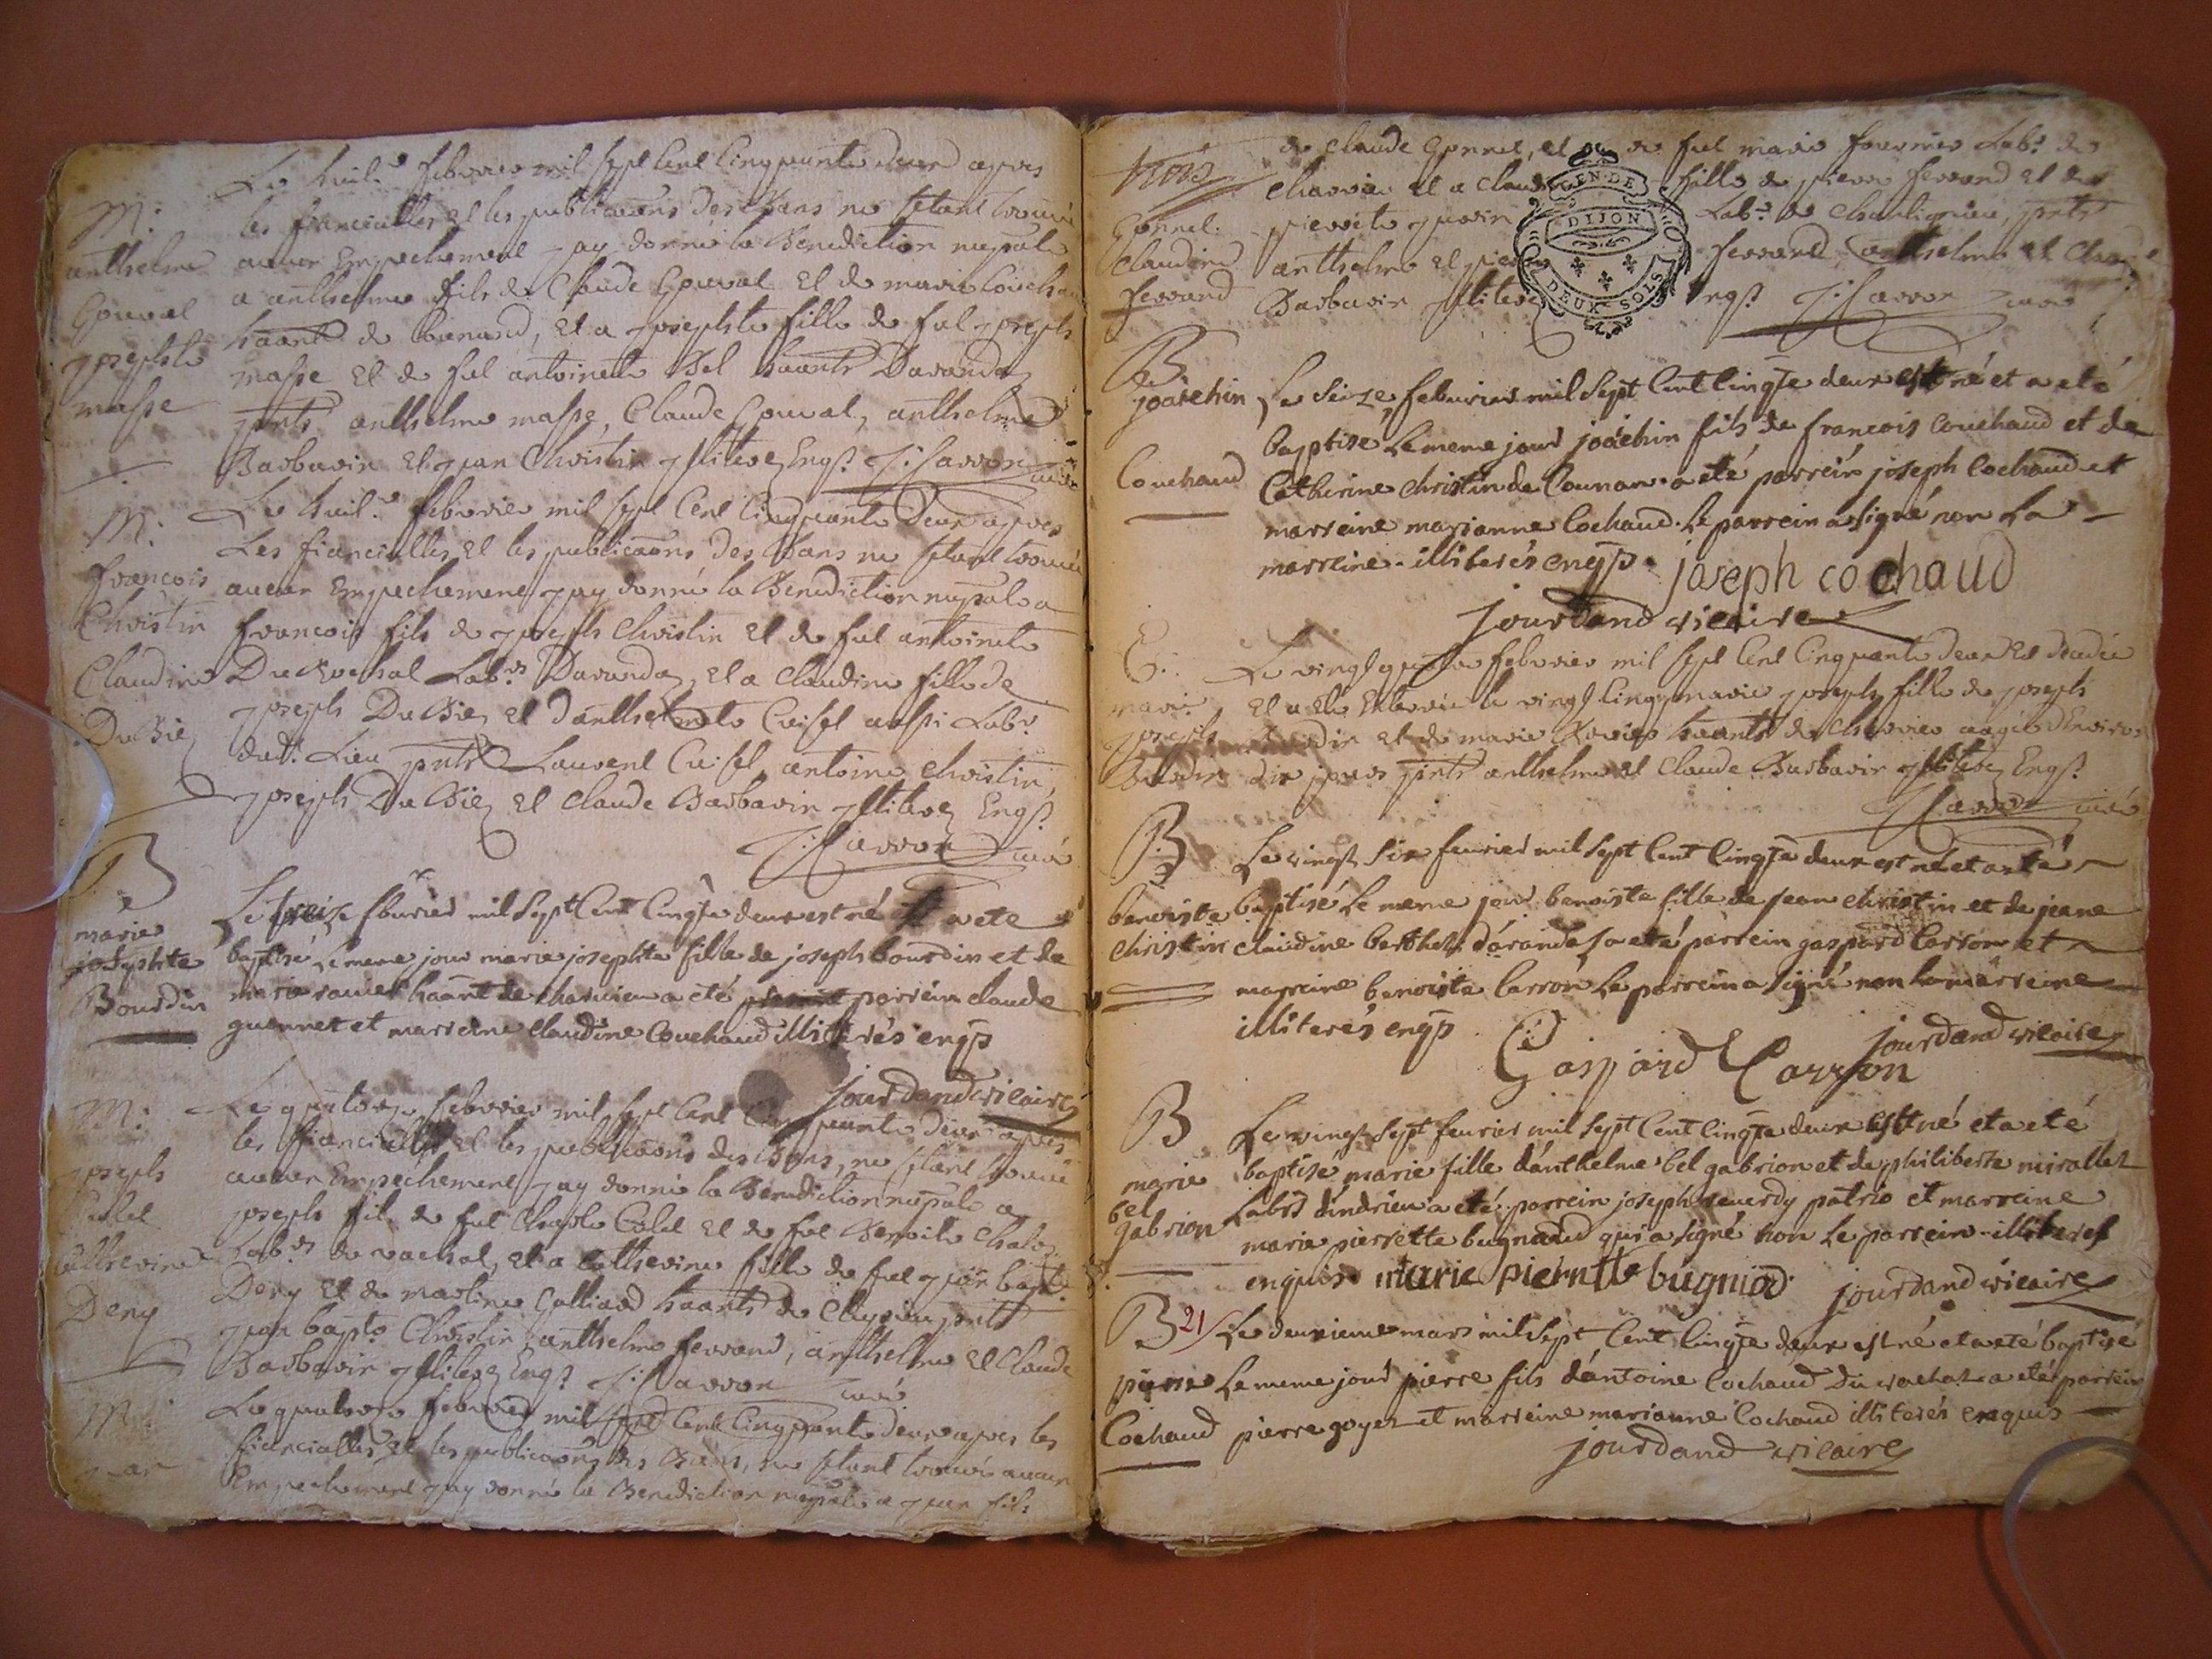 M:
anthelme
Gonval
josephte
masse
Le huit.e febvrier mil sept Cent Cinquante deux apres
les fiancialles et les publicaõns des Bans ne s'etant trouvé
aucun Empechement jay donné la Benediction nuptale
a anthelme fils de Claude Gonval et de marie Couchau
haants de Counand, et a josephte fille de fut joseph
masse et de fut antoinette Bel haants Davanda
pnts anthelme masse, Claude Gonval, anthelme
Barbarin et jean Christin illiterez Engs. J: Carron curé
M:
francois
Christin
Claudine
DuBiez
Le huit.e febvrier mil sept Cent Cinquante Deux apres
Les fiancialles et les publicaõns des Bans ne s'etant trouvé
aucun Empechement jay donné la Benediction nuptale a
francois fils de joseph Christin et de fut antoinette
DuRochat Lab.rs Davanda, et a Claudine fille de
joseph DuBiez et danthelmete Cuisel aussi Lab.r
dud.t Lieu pnts Laurent Cuisel, antoine Christin,
joseph DuBiez et Claude Barbarin illiterez Engs.
J: Carron curé
B
marie
josephte
Bourdin
Le treize fburier mil Sept Cent Cinqte deux est né et a ete
baptisé Le meme jour marie josephte fille de joseph bourdin et de
marie ravier haant de charvieu a eté parrein claude
guennet et marreine claudine Couchaud illiterés enqs
jourdand vicaire
M:
joseph
Culet
Catherine
Deny
Le quatorze febvrier mil sept Cent Cinquante deux apres
les fiancialles et les publicaõns des Bans, ne s'etant trouvé
aucun Empechement jay donné la Benediction nuptale a
joseph fils de fut Charle Culet et de fut Benoite Chaboz
Lab.rs de vachat, et a Catherine fille de fut jean bapt.
Deny et de martine Galliard haants de Cleyzieu pnts
jean bapt.e Christin, anthelme ferrand, anthelme et Claude
Barbarin illiterez Engs. J: Carron curé
M:
jean
Le quatorze febvrier mil sept Cent Cinquante deux apres les
fiancialles et les publicaõns des Bans, ne s'etant trouvé aucun
Empechement jay donné la Benediction nuptale a jean fils
Gonnet
Claudine
ferrand
de Claude Gonnet, et de fut marie fournier Lab.r de
Charvieu et a Claud fille de pierre ferrand et de
pierrete guerin Lab.rs de Chantignieu, pnts
anthelme et pierre ferrand anthelme et Claude
Barbarin illiterez Engs. J: Carron curé
GEN·DE
DIJON
DEUX·SOLS
B
joáchin
Couchaud
Le Seize feburier mil Sept Cent Cinqte deux est né et a eté
baptise Le meme jour joáchin fils de francois Couchaud et de
Catherine christin de Counan a eté parrein joseph Cochaud et
marreine marianne Cochaud. Le parrein a signé non La
marreine illiterés enqs. joseph cochaud
jourdand vicaire
E:
marie
joseph
Bourdin
Le vingt quatre febvrier mil sept Cent Cinquante deux est decedée
et a ete Enterrée le vingt Cinq marie joseph fille de joseph
Bourdin et de marie Ravier haants de Charvieu aagée dEnviron
dix jours pnts anthelme et Claude Barbarin illiterez Engs.
J Carron curé
B
benoiste
christin
Le vingt Six feurier mil Sept Cent Cinqte deux est né et a eté
baptisé Le meme jour benoiste fille de jean christin et de jeane
claudine berthet dárandaz a eté parrein gaspard Carron et
marreine benoiste Carron Le parrein a signé non La marreine
illiterés enqs
jourdand vicaire
Gaspard Carron
B
marie
bel
gabrion
Le vingt Sept feurier mil Sept Cent Cinqte deux est né et a eté
baptisé marie fille dánthelme bel gabrion et de philiberte mirallet
Labrs díndrieu a eté parrein joseph reverdy patrio et marreine
marie pierrette bugnaud qui a signé non Le parrein illiteres
enquis marie pierntte bugniod jourdand vicaire
B 21
pierre
Cochaud
Le deuxieme mars mil Sept Cent Cinqte deux est né et a eté baptisé
Le meme jour pierre fils dántoine Cochaud Du vachat a eté parrein
pierre goyet et marreine marianne Cochaud illiterés enquis
jourdand vicaire